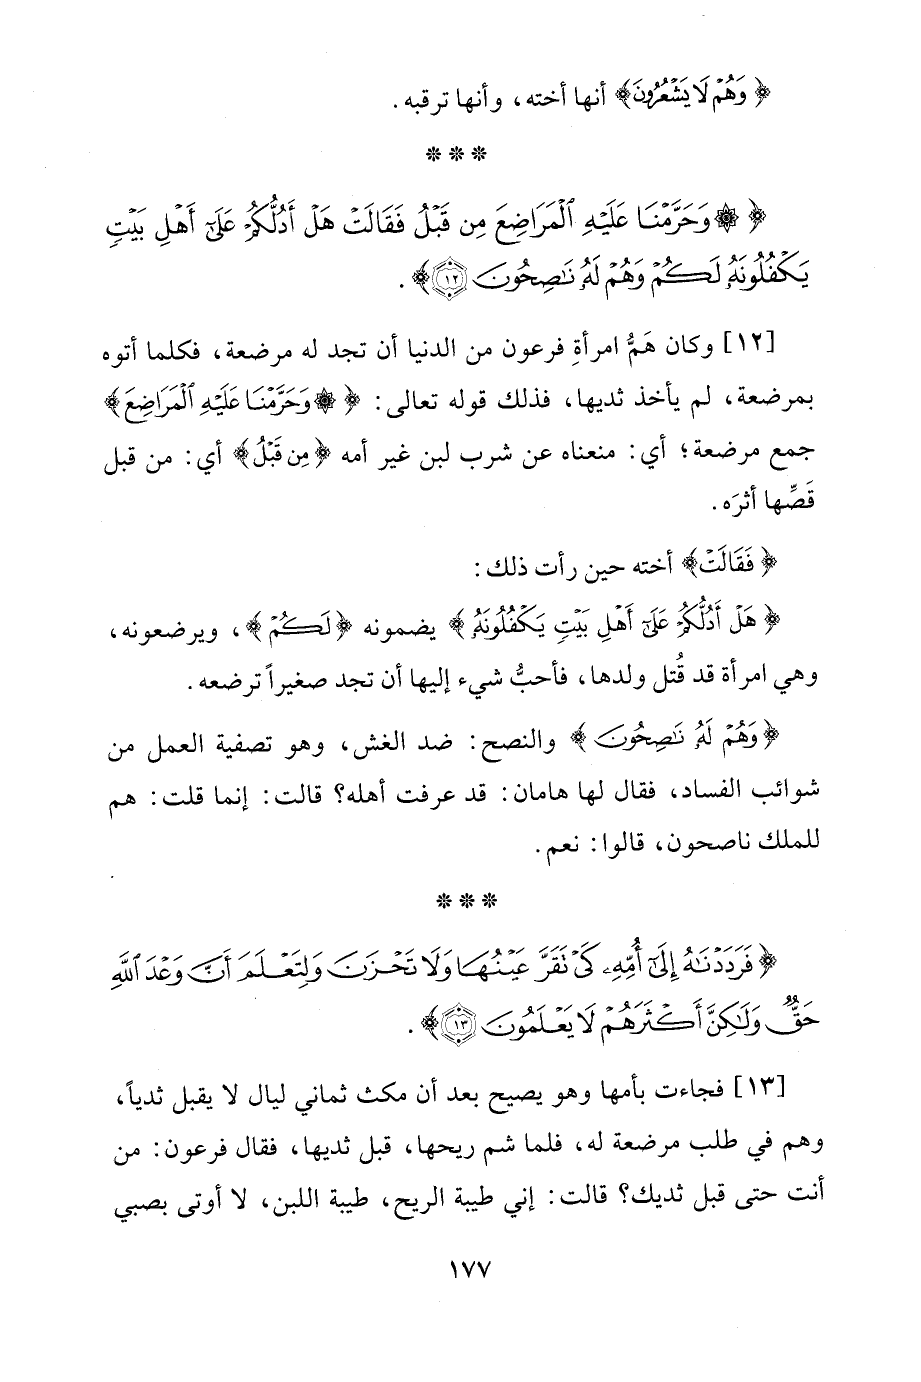 ﴿وَهُمْ لَا يَشْعُرُونَ﴾ أنها أخته، وأنها ترقبه.
* * *
﴿۞ وَحَرَّمْنَا عَلَيْهِ ٱلْمَرَاضِعَ مِن قَبْلُ فَقَالَتْ هَلْ أَدُلُّكُمْ عَلَىٰٓ أَهْلِ بَيْتٍ
يَكْفُلُونَهُۥ لَكُمْ وَهُمْ لَهُۥ نَٰصِحُونَ ١٢﴾.
[١٢] وكان هَمُّ امرأةِ فرعون من الدنيا أن تجد له مرضعة، فكلما أتوه
بمرضعة، لم يأخذ ثديها، فذلك قوله تعالى: ﴿۞ وَحَرَّمْنَا عَلَيْهِ ٱلْمَرَاضِعَ﴾
جمع مرضعة؛ أي: منعناه عن شرب لبن غير أمه ﴿مِن قَبْلُ﴾ أي: من قبل
قَصِّها أثرَه.
﴿فَقَالَتْ﴾ أخته حين رأت ذلك:
﴿هَلْ أَدُلُّكُمْ عَلَىٰٓ أَهْلِ بَيْتٍ يَكْفُلُونَهُۥ﴾ يضمونه ﴿لَكُمْ﴾، ويرضعونه،
وهي امرأة قد قُتل ولدها، فأحبُّ شيء إليها أن تجد صغيراً ترضعه.
﴿وَهُمْ لَهُۥ نَٰصِحُونَ﴾ والنصح: ضد الغش، وهو تصفية العمل من
شوائب الفساد، فقال لها هامان: قد عرفت أهله؟ قالت: إنما قلت: هم
للملك ناصحون، قالوا: نعم.
* * *
﴿فَرَدَدْنَٰهُ إِلَىٰٓ أُمِّهِۦ كَىْ تَقَرَّ عَيْنُهَا وَلَا تَحْزَنَ وَلِتَعْلَمَ أَنَّ وَعْدَ ٱللَّهِ
حَقٌّ وَلَٰكِنَّ أَكْثَرَهُمْ لَا يَعْلَمُونَ ١٣﴾.
[١٣] فجاءت بأمها وهو يصيح بعد أن مكث ثماني ليال لا يقبل ثدياً،
وهم في طلب مرضعة له، فلما شم ريحها، قبل ثديها، فقال فرعون: من
أنت حتى قبل ثديك؟ قالت: إني طيبة الريح، طيبة اللبن، لا أوتى بصبي
١٧٧